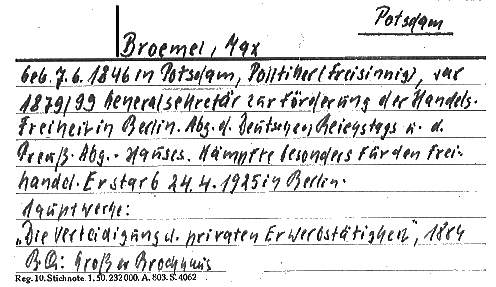 Potsdam
Broemel, Max
Geb. 7.6.1846 in Potsdam, Politiker (Freisinnig), war
1879/99 Generalsekretär zur Förderung der Handels-
Freiheit in Berlin. Abg. d. Deutschen Reichstags u. d.
Preuß. Abg.-Hauses. Kämpfte besonders für den Frei-
handel. Er starb 24.4.1925 in Berlin.
Hauptwerke:
„Die Verteidigung d. privaten Erwerbstätigkeit", 1884
B.Q.: Großer Brockhaus
Reg. 10. Stichnote. 1. 50. 232000. A. 803. S. 4062